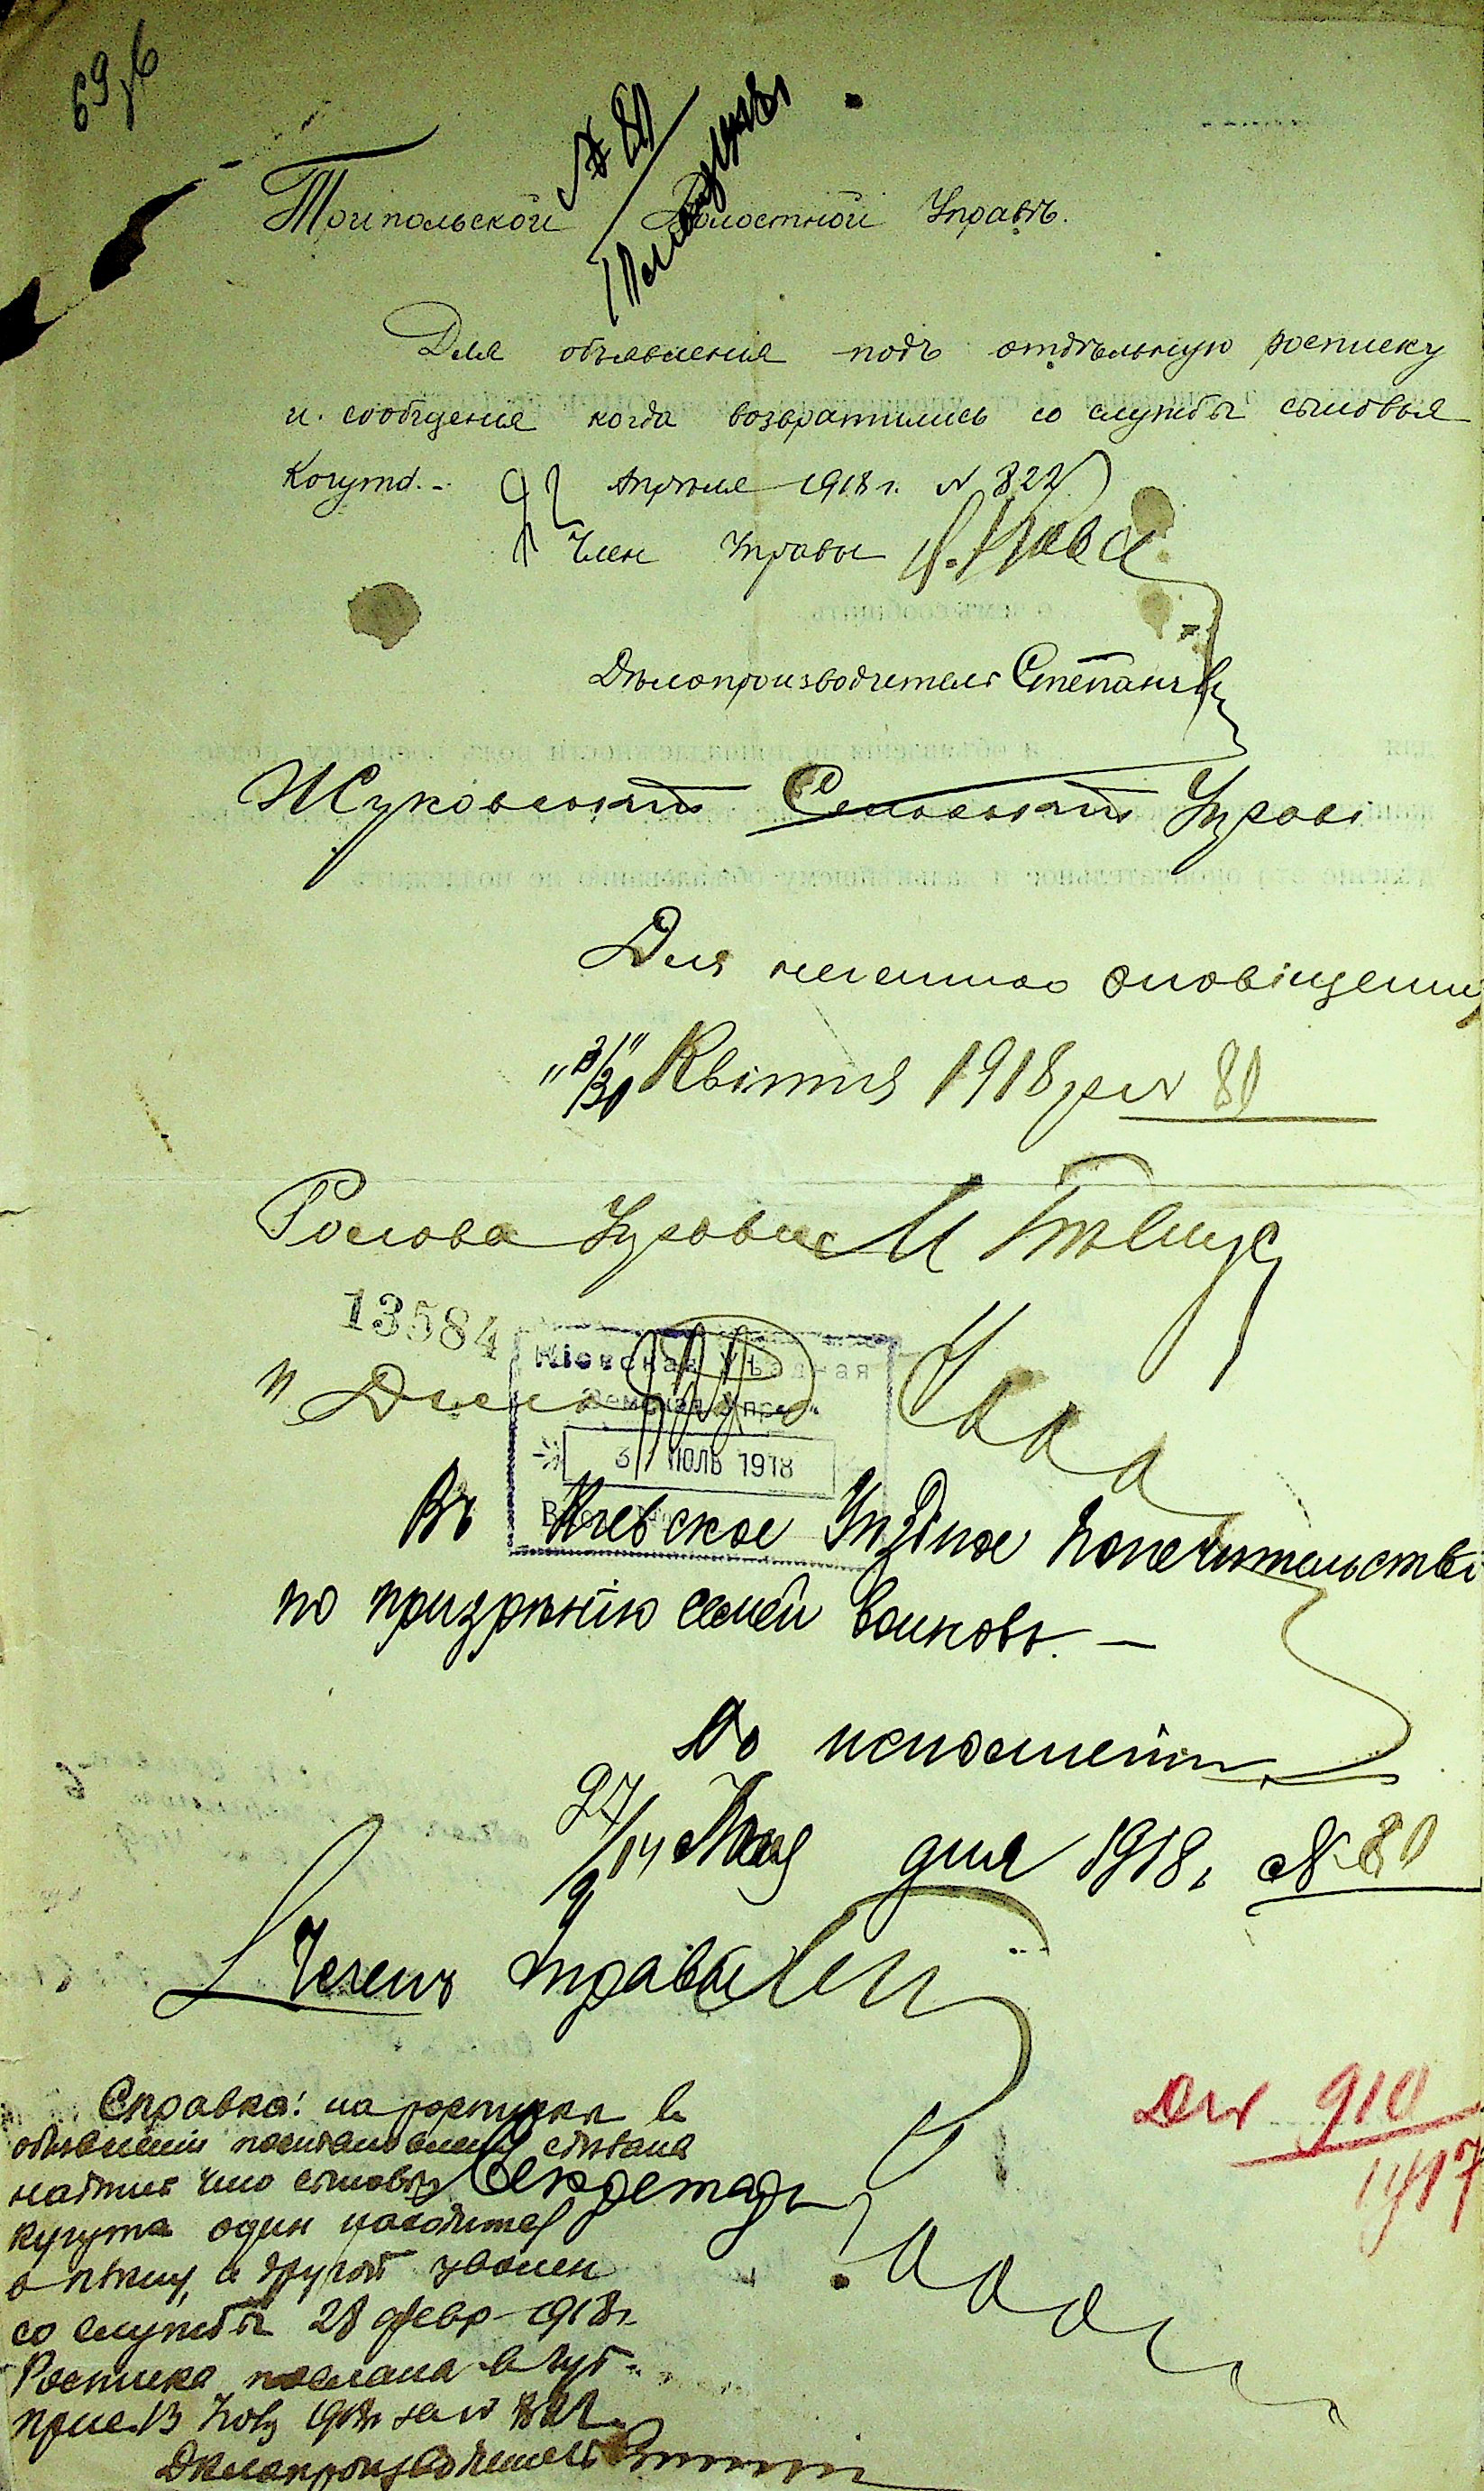 69об
№ 80
Трипольской Волостной Управѣ.
Для объявленія подъ отдѣльную росписку
и сообщенія когда возвратились со службы сыновья
Когута.- Апрѣля 1918 г. № 822
Член Управы
Дѣлопроизводитель Степанч
Жуковський Сельський Управі
Для негайного оповіщення
Квітня 1918 р № 80
Голова Управи М
13584
Кіевская Уѣздная
Земская Управа
31 ИЮЛЬ 1918
Въ Киевское Уѣздное Попечительство
по призрѣнію семей воиновъ. —
По исполненіи
27/14 Мая дня 1918 г № 80
Членъ Управы
Секретарь
Справка: на росписке в
объявленіи постановленія сдѣлана
надпись что сыновья
кугута один находится
в плѣну, а другой уволен
со службы 28 февр 1918 г.
Росписка послана в Губ.
прис. 13 1918 г. за № 822
Дѣлопроизводитель
Дѣл 910
1917